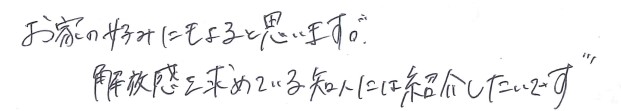 お家の好みにもよると思いますが、
解放感を求めている知人には紹介したいです